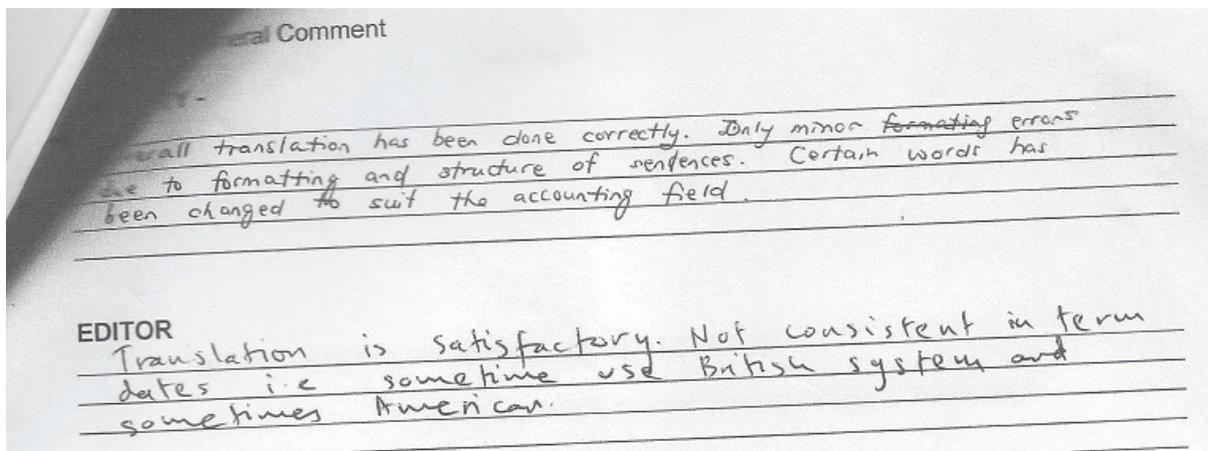 eral Comment
erall translation has been done correctly. Only minor formating errors
due to formatting and structure of sentences. Certain words has
been changed to suit the accounting field.
EDITOR
Translation is satisfactory. Not consistent in term
dates i.e sometime use British system and
sometimes American.